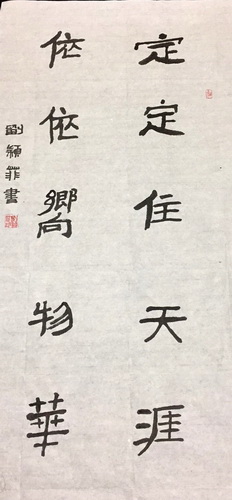 定定住天涯
依依嚮物華
劉穎菲書